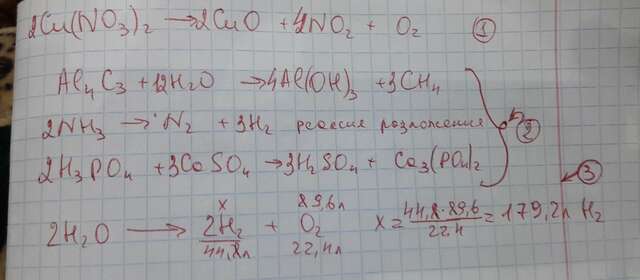 2Cu(NO₃)₂ → 2CuO + 4NO₂ + O₂ ①
Al₄C₃ + 12H₂O → 4Al(OH)₃ + 3CH₄
2NH₃ → N₂ + 3H₂ реакция разложения ②
2H₃PO₄ + 3CaSO₄ → 3H₂SO₄ + Ca₃(PO₄)₂
③
x 89,6л
2H₂O → 2H₂ + O₂ x = 44,8·89,6 / 22,4 = 179,2л H₂
44,8л 22,4л